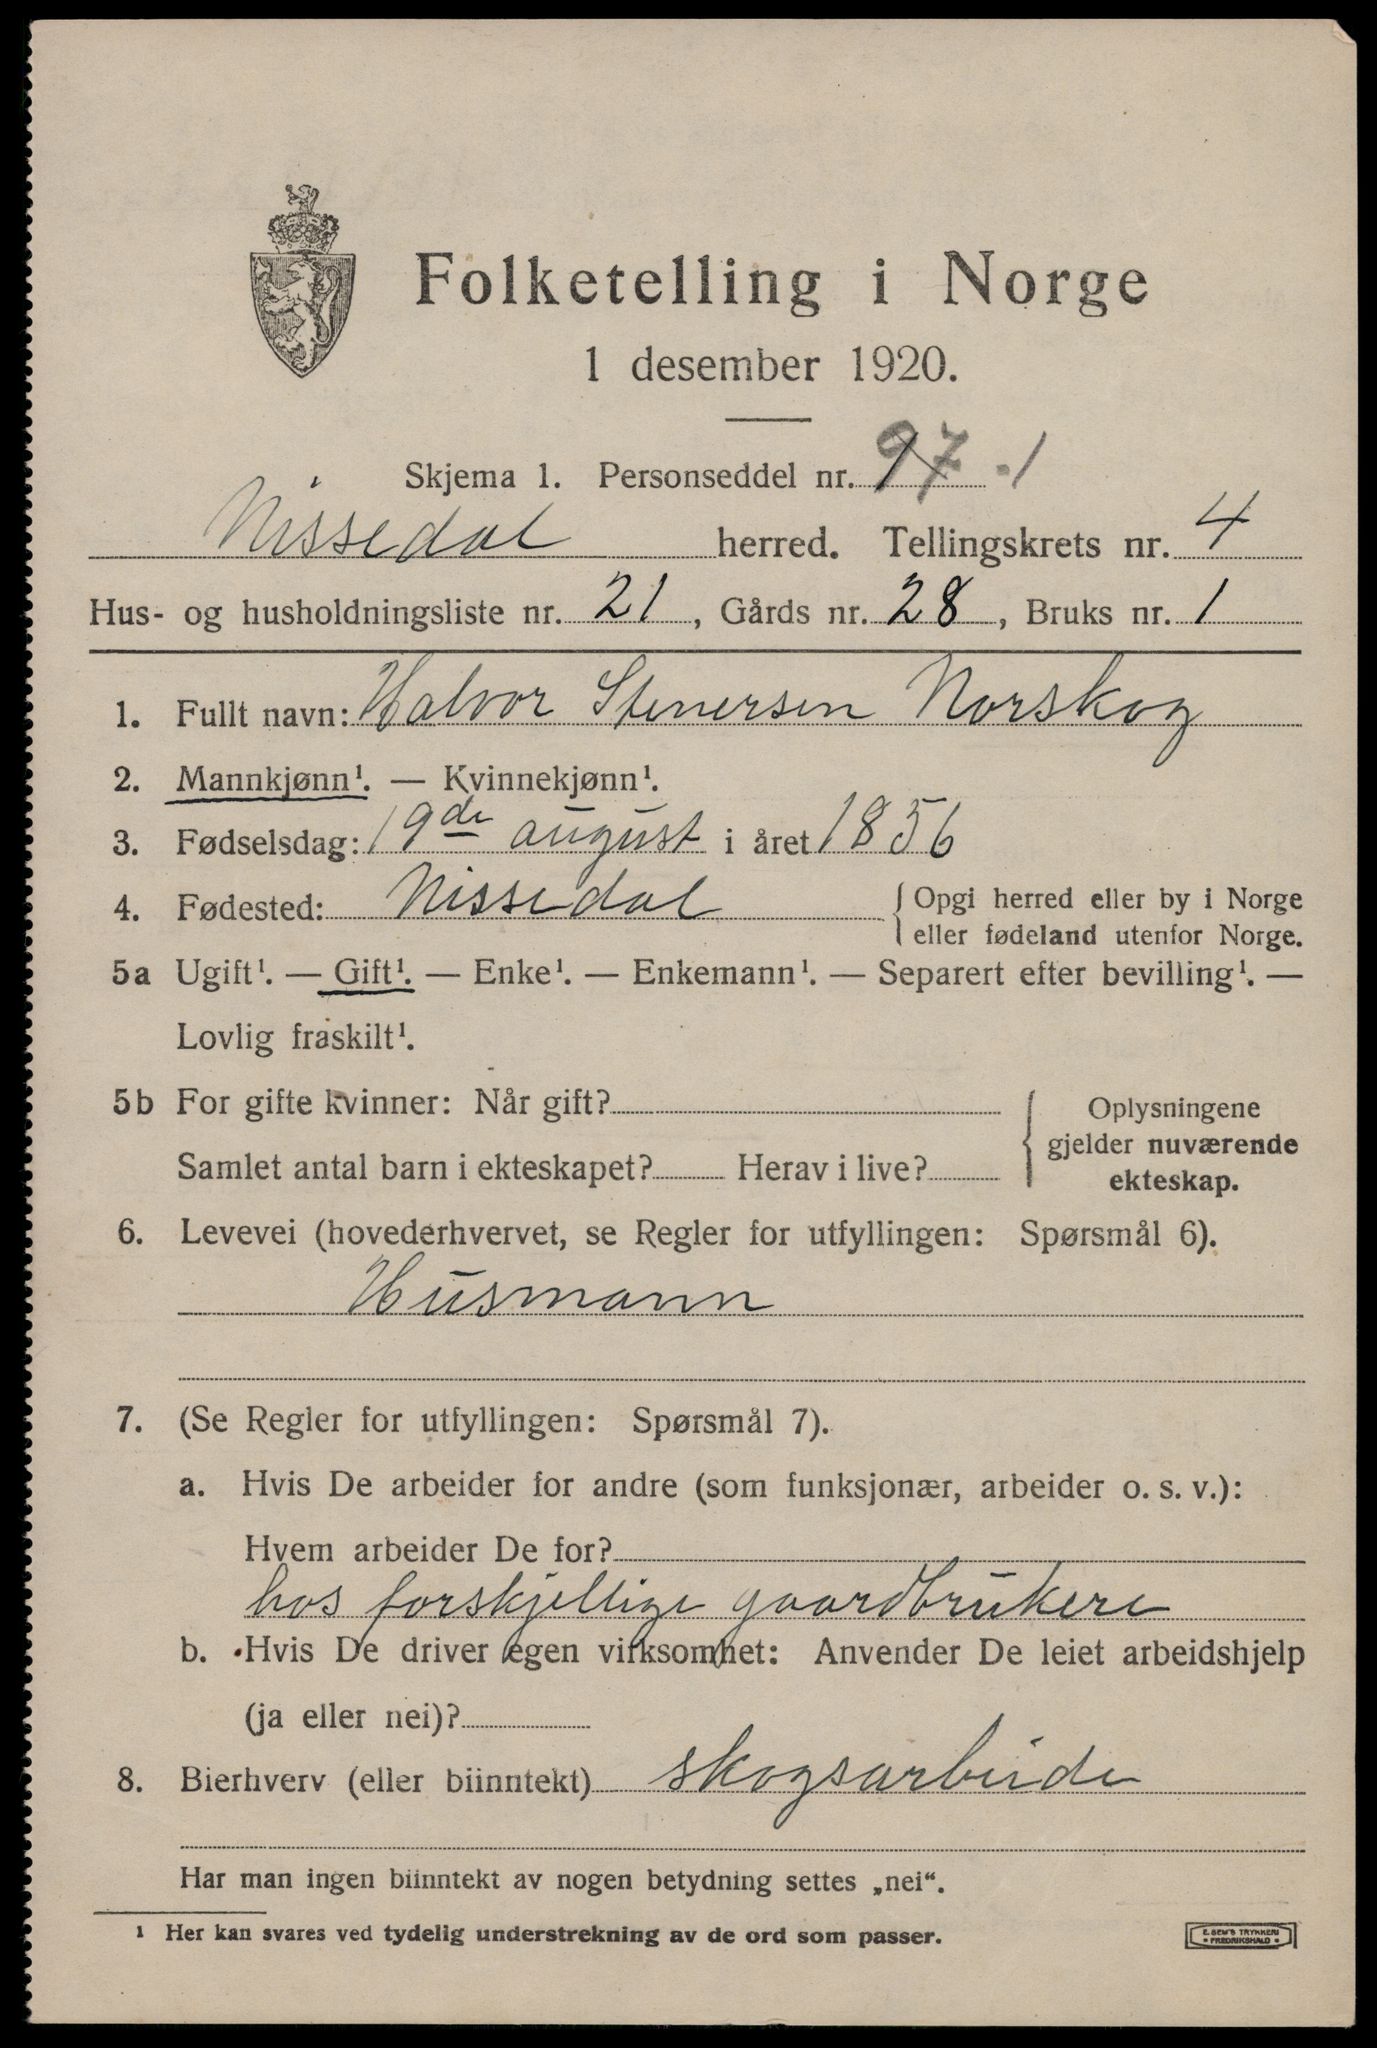 Folketelling i Norge
1 desember 1920.
Skjema 1. Personseddel nr. 97.1
Nissedal herred. Tellingskrets nr. 4
Hus- og husholdningsliste nr. 21, Gårds nr. 28, Bruks nr. 1
1. Fullt navn: Halvor Stenersen Norskog
2. Mannkjønn¹. — Kvinnekjønn¹.
3. Fødselsdag: 19de august i året 1856
4. Fødested: Nissedal { Opgi herred eller by i Norge
eller fødeland utenfor Norge.
5a Ugift¹. — Gift¹. — Enke¹. — Enkemann¹. — Separert efter bevilling¹. —
Lovlig fraskilt¹.
5b For gifte kvinner: Når gift? { Oplysningene
gjelder nuværende
Samlet antal barn i ekteskapet? Herav i live?
ekteskap.
6. Levevei (hovederhvervet, se Regler for utfyllingen: Spørsmål 6).
Husmann
7. (Se Regler for utfyllingen: Spørsmål 7).
a. Hvis De arbeider for andre (som funksjonær, arbeider o. s. v.):
Hvem arbeider De for?
hos forskjellige gaardbrukere
b. Hvis De driver egen virksomhet: Anvender De leiet arbeidshjelp
(ja eller nei)?
8. Bierhverv (eller biinntekt) skogsarbeide
Har man ingen biinntekt av nogen betydning settes „nei“.
¹ Her kan svares ved tydelig understrekning av de ord som passer.
E. SEM'S TRYKKERI
• FREDRIKSHALD •